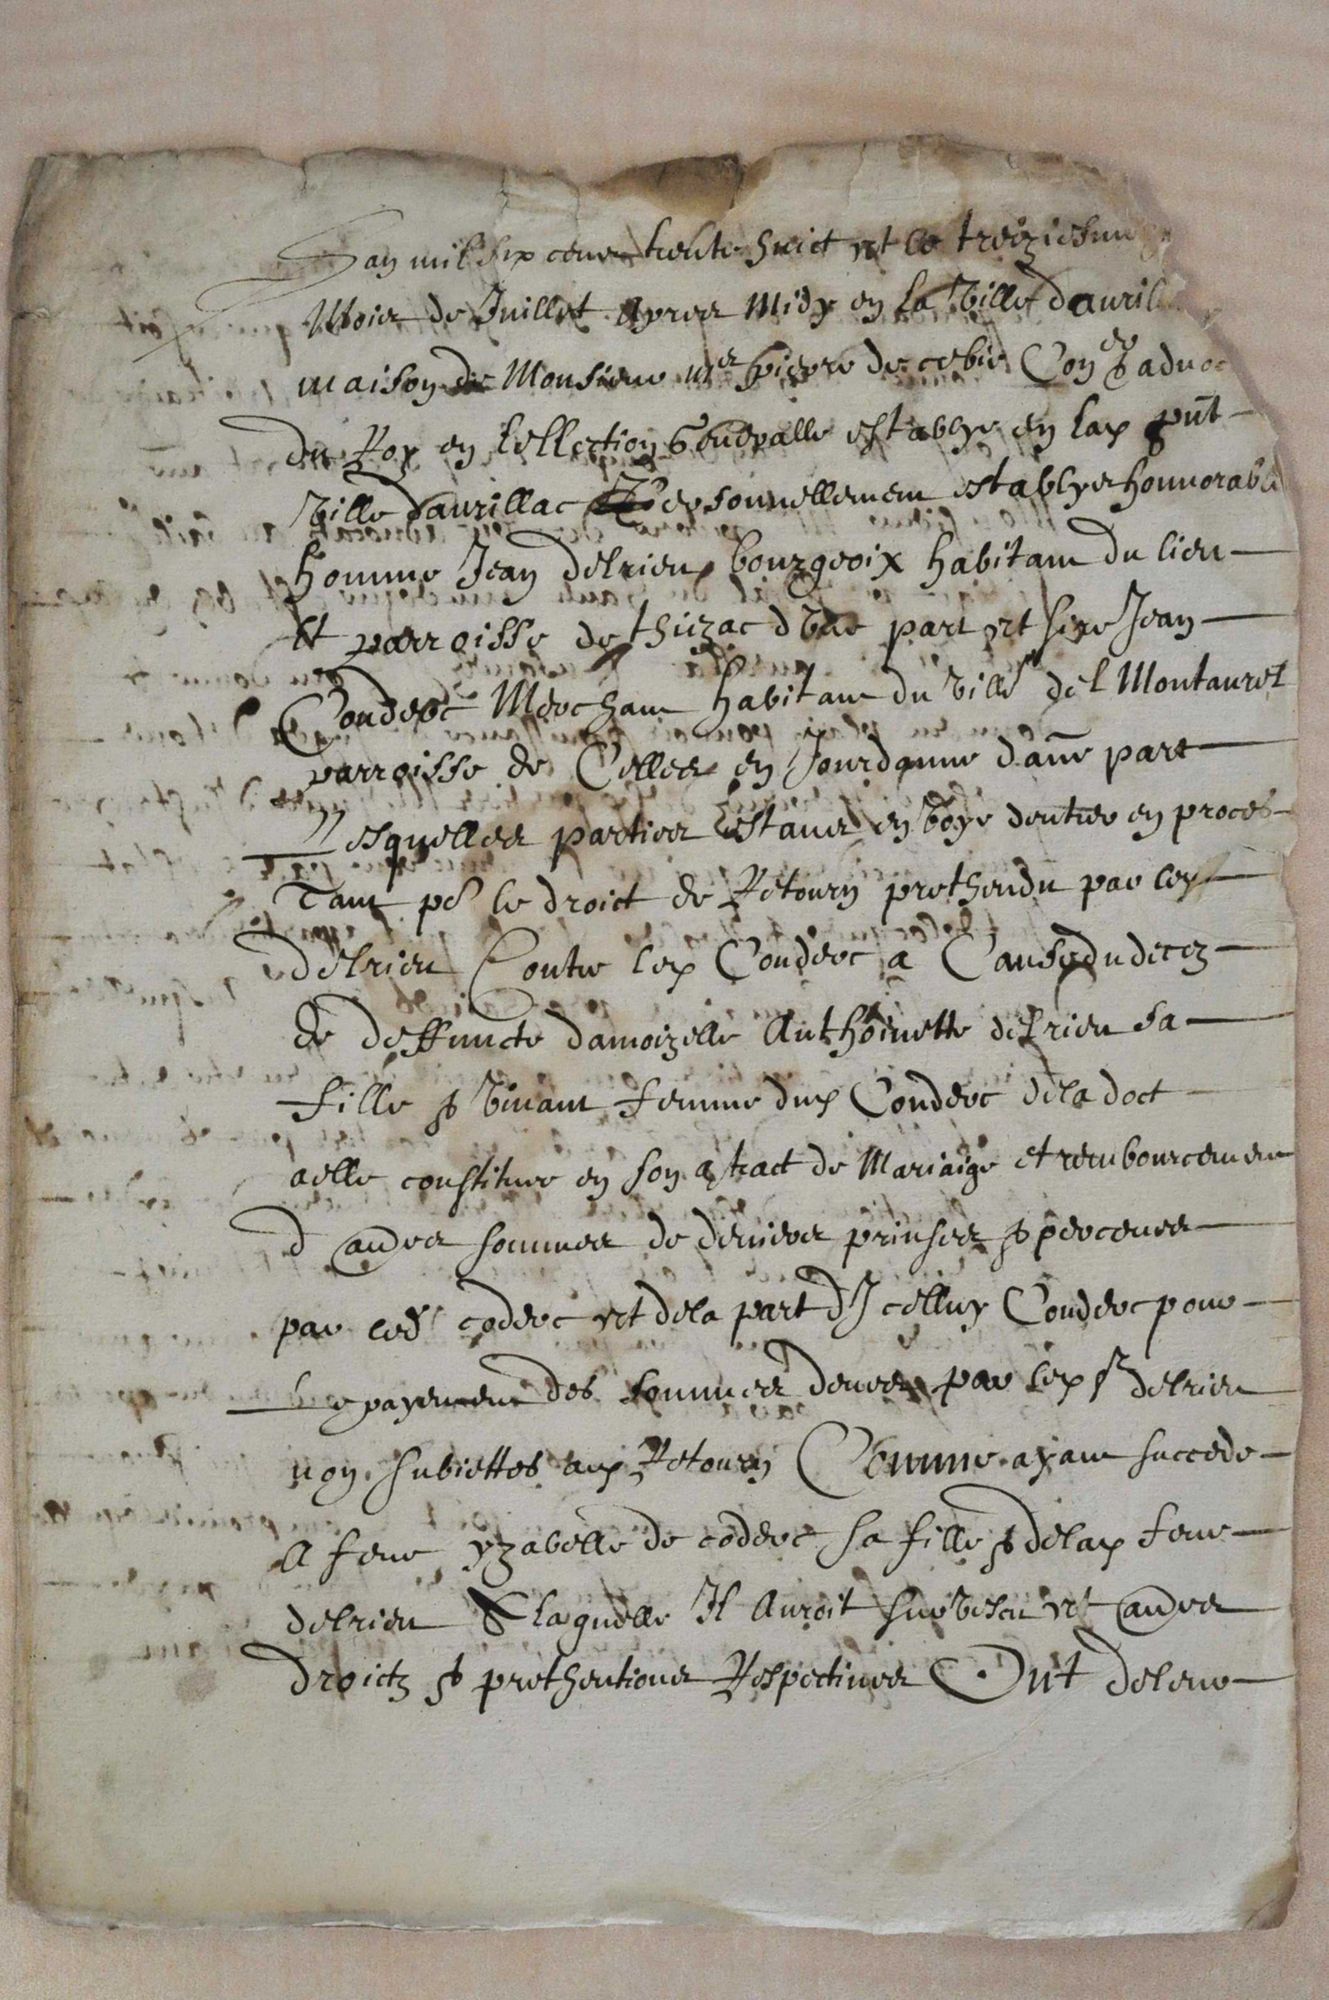 Lan mil six cens trente huict et le treiziesme
Mois de Juillet apres Midy en la Ville daurill
maison de Monsieur mer pierre de cebie Coner & advoc
du Roy en lellection Generalle establye en lad pnt
Ville daurillac Personnellement establys honnorable
homme Jean delrieu bourgeoix habitant du lieu
Et parroisse de thiezac dune part et sire Jean
Couderc Merchant habitant du Ville del Montauret
parroisse de Celles en Jourdanne daue part
Lesquelles parties Estans en Voye dentrer en proces
Tant pr le droict de Retourn prethendu par led
delrieu Contre led Couderc a Cause du decez
de deffuncte damoizelle Anthoinette delrieu sa
fille & Vivant femme dud Couderc dela doct
aelle constituee en son qtract de Mariaige et remboursement
d aues sommes de deniers prinses & perceues
par led coderc et dela part dIcelluy Couderc pour
Le payement des sommes deues par led sr delrieu
non subiettes aud Retourn Comme ayant succede
A feue yzabelle de coderc sa fille & delad feue
delrieu & laquelle Il Auroit survescu et aues
droictz & prethentions Respectives Ont deleur